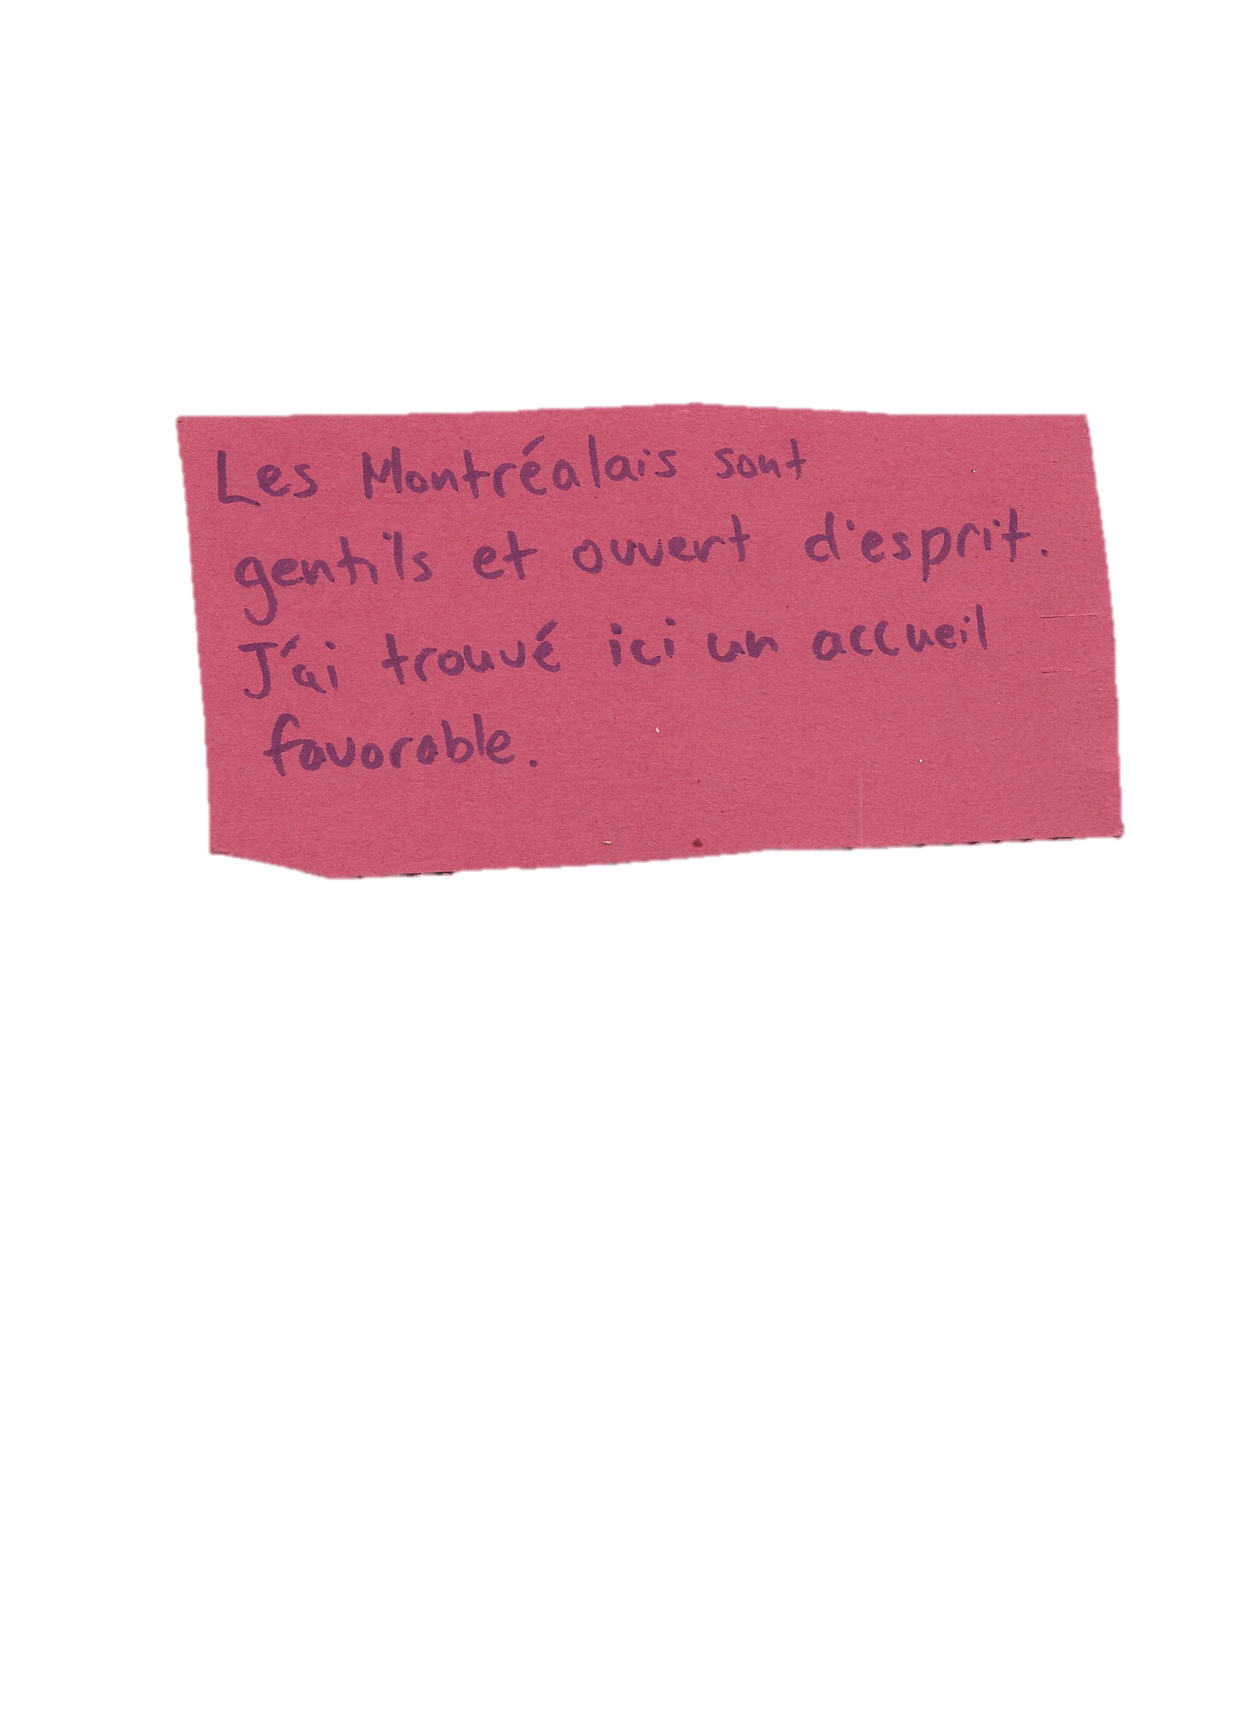 Les Montréalais sont
gentils et ouvert d'esprit.
J'ai trouvé ici un accueil
favorable.